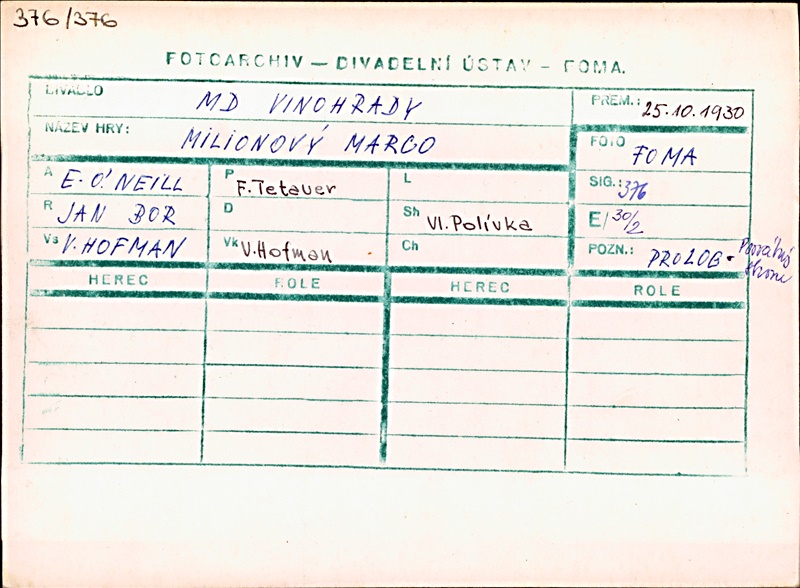 376/376
FOTOARCHIV — DIVADELNÍ ÚSTAV – FOMA.
DIVADLO MD VINOHRADY
PREM.: 25.10.1930
NÁZEV HRY: MILIONOVÝ MARCO
FOTO FOMA
A E. O'NEILL
P F. Tetauer
L
SIG.: 376
R JAN BOR
D
Sh Vl. Polívka
E/30/2
Vs V. HOFMAN
Vk V. Hofman
Ch
POZN.: PROLOG -
HEREC ROLE HEREC ROLE